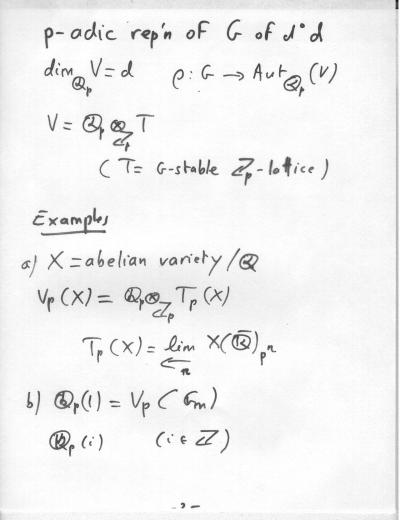 p-adic rep'n of G of d°d
dim_{ℚ_p} V = d    ρ: G → Aut_{ℚ_p}(V)
V = ℚ_p ⊗_{ℤ_p} T
( T = G-stable ℤ_p-lattice )
Examples
a) X = abelian variety / ℚ
V_p(X) = ℚ_p ⊗_{ℤ_p} T_p(X)
T_p(X) = lim_{←n} X(ℚ̄)_{p^n}
b) ℚ_p(1) = V_p(G_m)
ℚ_p(i)    (i ∈ ℤ)